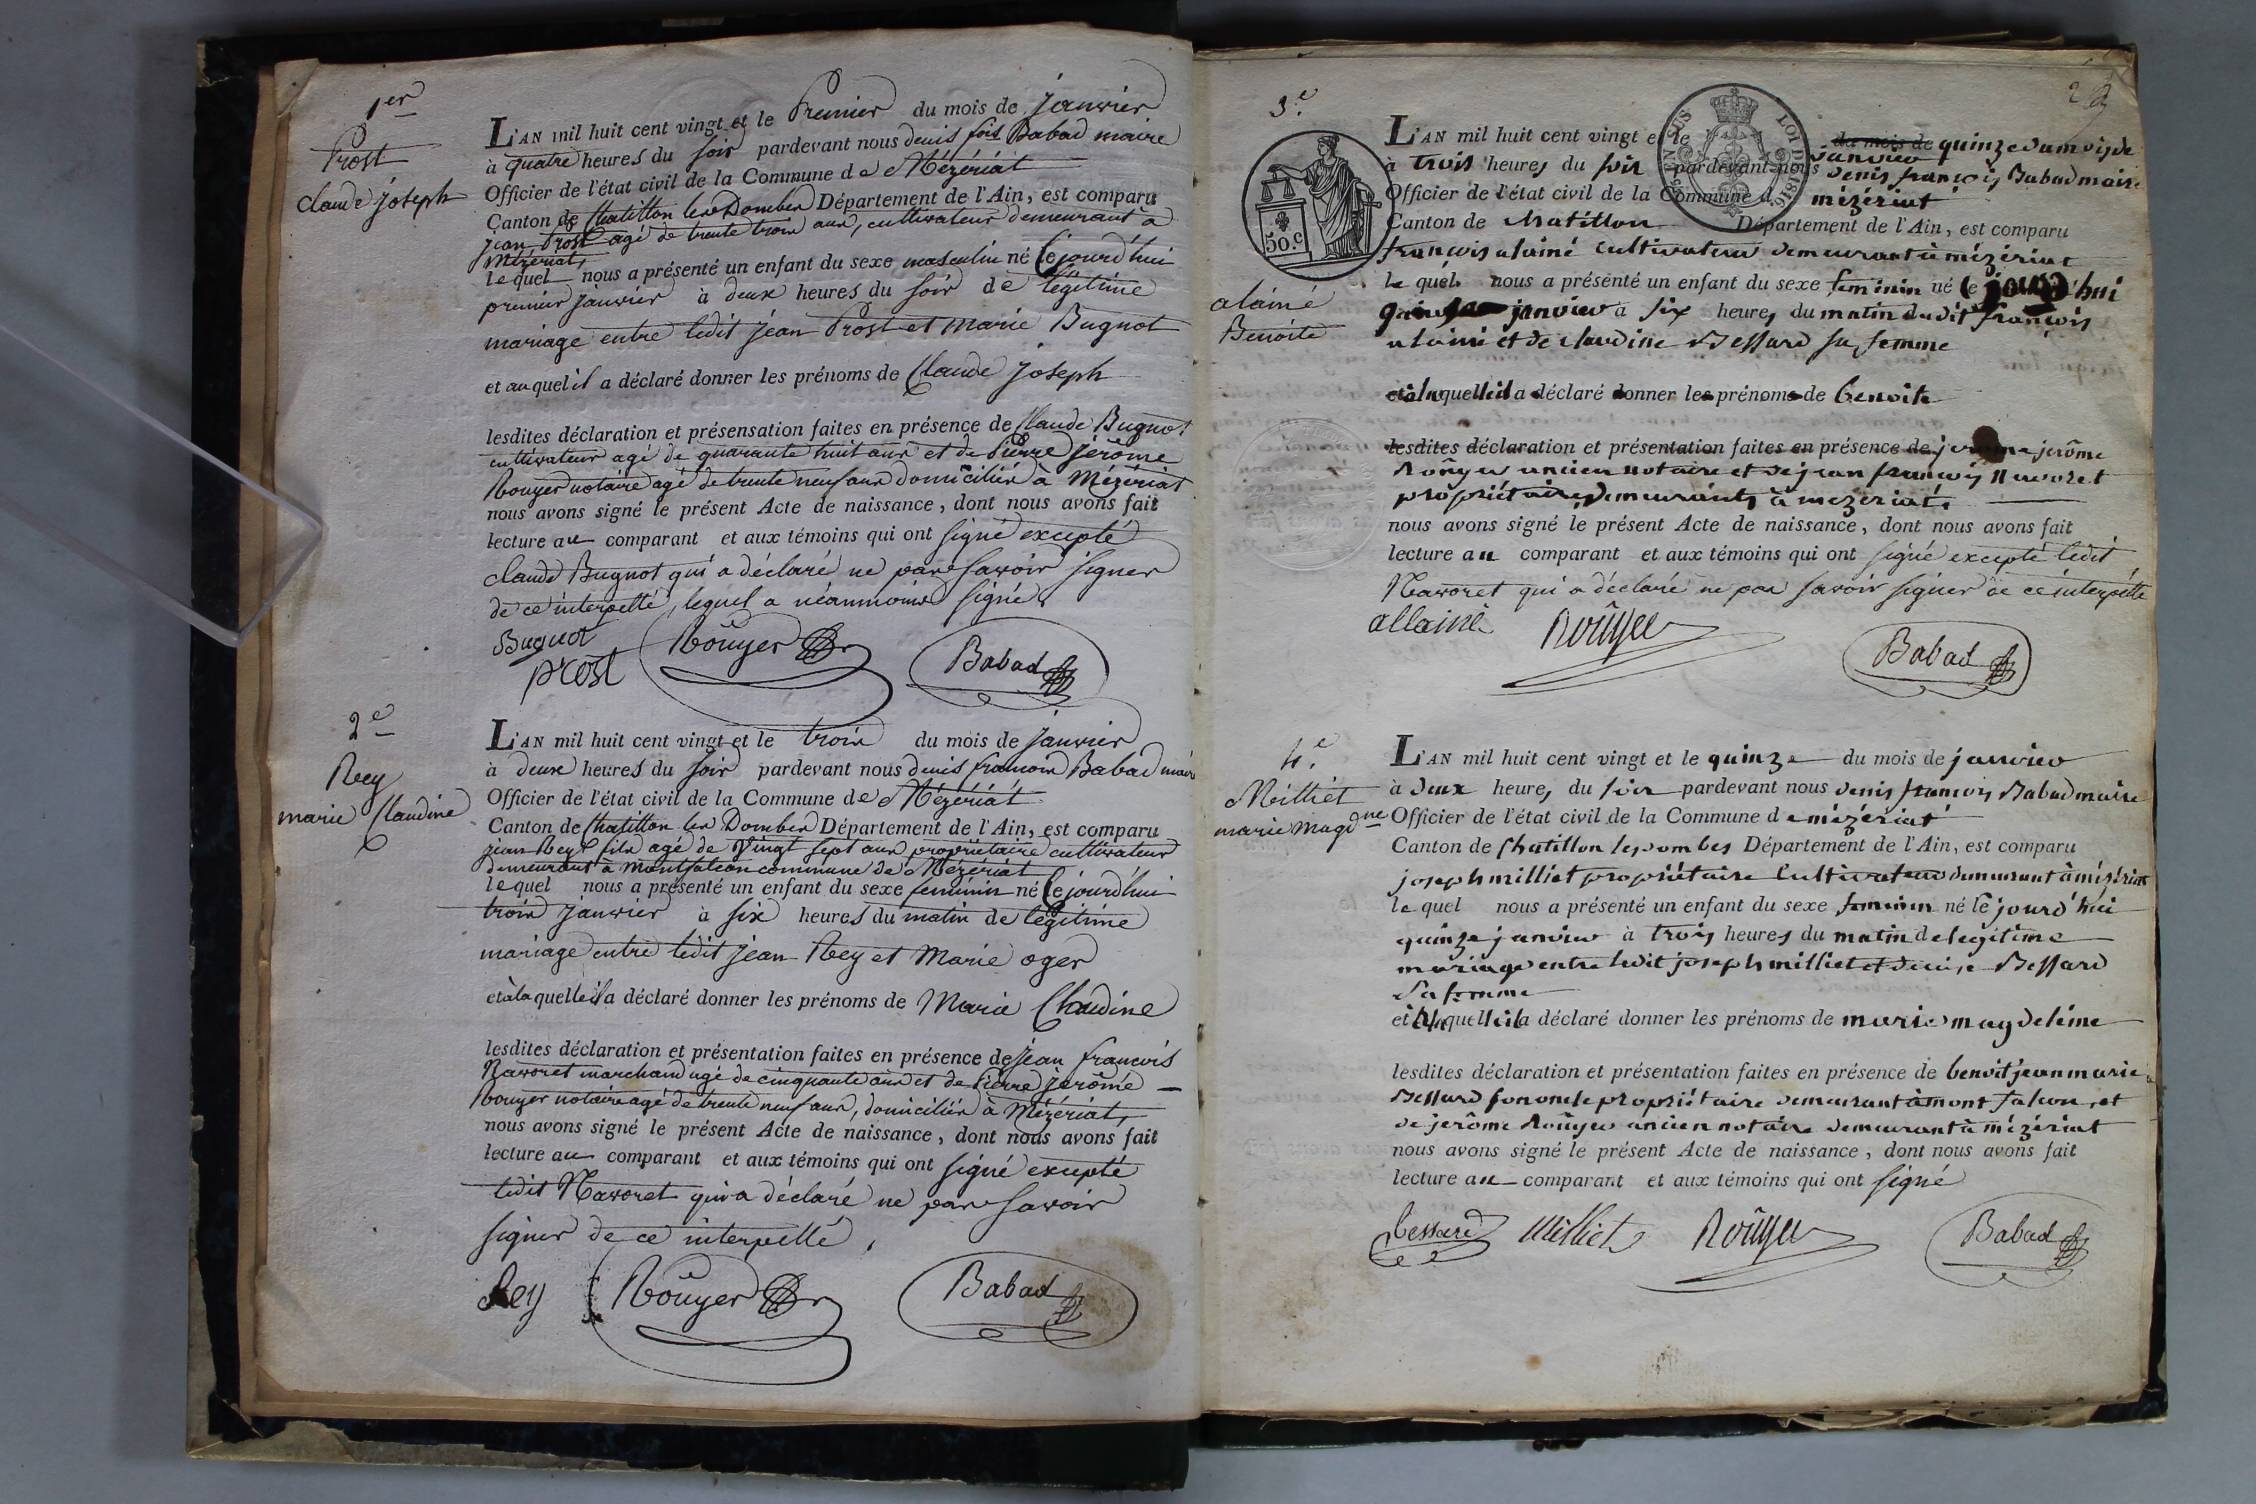 1er
Prost
Claude joseph
L'AN mil huit cent vingt et le Premier du mois de janvier
à quatre heures du soir pardevant nous denis fois Babad maire
Officier de l'état civil de la Commune de Mézériat
Canton de Chatillon les Dombes Département de l'Ain, est comparu
jean Prost agé de trente trois ans, cultivateur demeurant à
Mézériat,
le quel nous a présenté un enfant du sexe masculin né Cejourd'hui
premier janvier à deux heures du soir de légitime
mariage entre ledit jean Prost et Marie Bugnot
et au quel il a déclaré donner les prénoms de Claude joseph
lesdites déclaration et présensation faites en présence de Claude Bugnot
cultivateur agé de quarante huit ans et de Pierre jérôme
Roüyer notaire agé de trente neuf ans domiciliés à Mézériat
nous avons signé le présent Acte de naissance, dont nous avons fait
lecture au comparant et aux témoins qui ont signé excepté
Claude Bugnot qui a déclaré ne pas savoir signer
de ce interpellé, lequel a néanmoins signé.
Bugnot
prost Roüyer Babad
2e
Rey
marie Claudine
L'AN mil huit cent vingt et le trois du mois de janvier
à deux heures du soir pardevant nous denis francois Babad maire
Officier de l'état civil de la Commune de Mézériat
Canton de Chatillon les Dombes Département de l'Ain, est comparu
jean Rey fils agé de vingt sept ans propriétaire cultivateur
demeurant à Montfalcon commune de Mézériat
le quel nous a présenté un enfant du sexe feminin né Cejourd'hui
trois janvier à six heures du matin de légitime
mariage entre ledit jean Rey et Marie oger
et à la quelle il a déclaré donner les prénoms de Marie Claudine
lesdites déclaration et présentation faites en présence de jean francois
Navoret marchand agé de cinquante ans et de Pierre jerôme
Roüyer notaire agé de trente neuf ans, domiciliés à Mézériat,
nous avons signé le présent Acte de naissance, dont nous avons fait
lecture au comparant et aux témoins qui ont signé excepté
ledit Navoret qui a déclaré ne pas savoir
signer de ce interpellé,
Rey Roüyer Babad
3e
50.c
alainé
Benoite
L'AN mil huit cent vingt et le du mois de quinze du mois de
janvier
à trois heures du soir pardevant nous denis françois Babad maire
Officier de l'état civil de la Commune d mézériat
Canton de Chatillon Département de l'Ain, est comparu
françois alainé cultivateur demeurant à mézériat
le quel nous a présenté un enfant du sexe feminin né ce jourd'hui
quinze janvier à six heures du matin dudit françois
alainé et de claudine Bessard sa femme
et à laquelle il a déclaré donner les prénoms de benoite
lesdites déclaration et présentation faites en présence de jerôme
Roüyer ancien notaire et de jean françois Navoret
propriétaires demeurants à mézériat.
nous avons signé le présent Acte de naissance, dont nous avons fait
lecture au comparant et aux témoins qui ont signé excepté ledit
Navoret qui a déclaré ne pas savoir signer de ce interpellé
allainé Roüyer Babad
4e
Milliet
marie magdne
L'AN mil huit cent vingt et le quinze du mois de janvier
à deux heures du soir pardevant nous denis francois Babad maire
Officier de l'état civil de la Commune de mézériat
Canton de Chatillon les dombes Département de l'Ain, est comparu
joseph milliet propriétaire Cultivateur demeurant à mézériat
le quel nous a présenté un enfant du sexe feminin né Ce jourd'hui
quinze janvier à trois heures du matin de legitime
mariage entre ledit joseph milliet et denise Bessard
sa femme
et à laquelle il a déclaré donner les prénoms de marie magdeleine
lesdites déclaration et présentation faites en présence de benoit jean marie
Bessard son oncle propriétaire demeurant à mont falcon, et
de jerôme Roüyer ancien notaire demeurant à mézériat
nous avons signé le présent Acte de naissance, dont nous avons fait
lecture au comparant et aux témoins qui ont signé
bessard Milliet Roüyer Babad